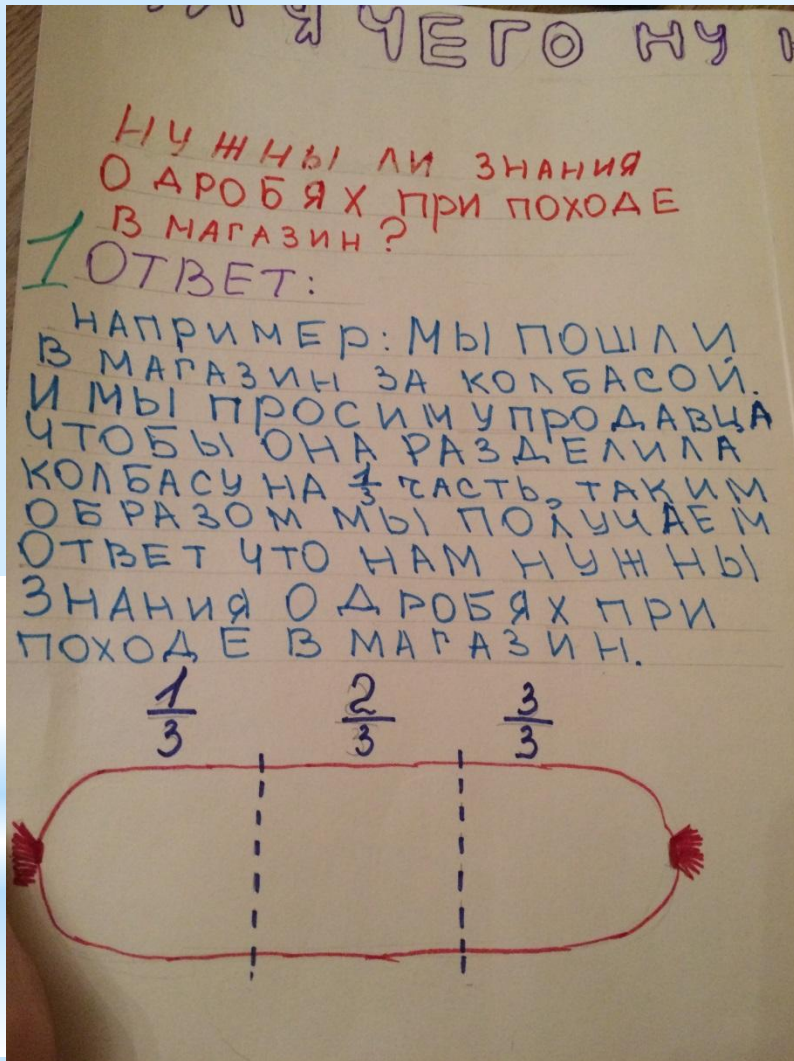 ЧЕГО НУ
НУЖНЫ ЛИ ЗНАНИЯ
О ДРОБЯХ ПРИ ПОХОДЕ
В МАГАЗИН?
1 ОТВЕТ:
НАПРИМЕР: МЫ ПОШЛИ
В МАГАЗИН ЗА КОЛБАСОЙ.
И МЫ ПРОСИМ У ПРОДАВЦА
ЧТОБЫ ОНА РАЗДЕЛИЛА
КОЛБАСУ НА 1/3 ЧАСТЬ, ТАКИМ
ОБРАЗОМ МЫ ПОЛУЧАЕМ
ОТВЕТ ЧТО НАМ НУЖНЫ
ЗНАНИЯ О ДРОБЯХ ПРИ
ПОХОДЕ В МАГАЗИН.
1/3 2/3 3/3